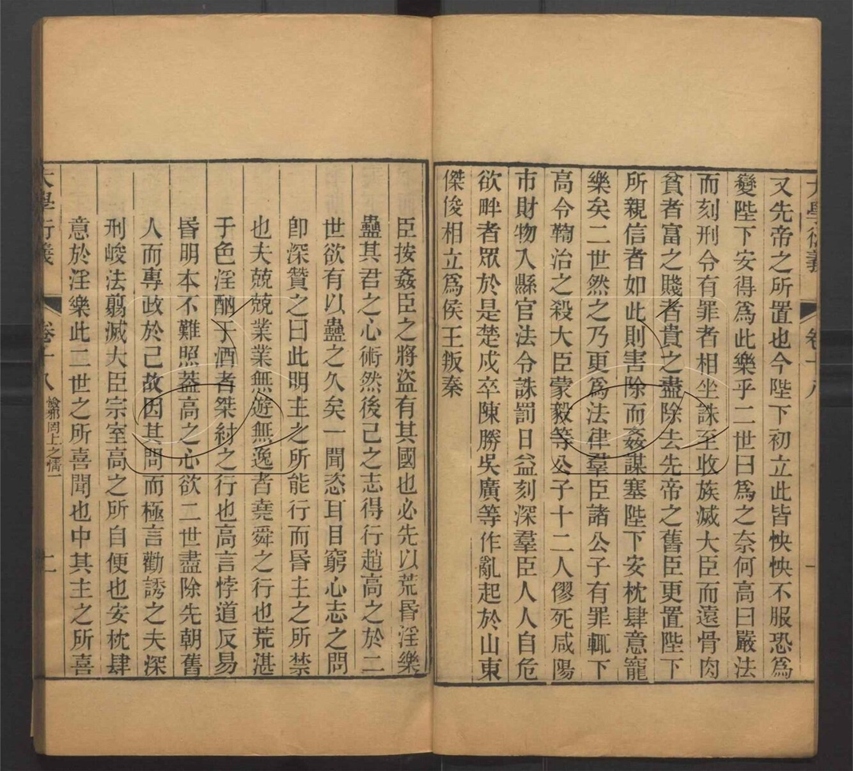 大學衍義
卷十八
一
又先帝之所置也今陛下初立此皆怏怏不服恐爲
變陛下安得爲此樂乎二世曰爲之奈何高曰嚴法
而刻刑令有罪者相坐誅至收族滅大臣而遠骨肉
貧者富之賤者貴之盡除去先帝之舊臣更置陛下
所親信者如此則害除而姦謀塞陛下安枕肆意寵
樂矣二世然之乃更爲法律羣臣諸公子有罪輒下
高令鞫治之殺大臣蒙毅等公子十二人僇死咸陽
市財物入縣官法令誅罰日益刻深羣臣人人自危
欲畔者眾於是楚戍卒陳勝吳廣等作亂起於山東
傑俊相立爲侯王叛秦
臣按姦臣之將盜有其國也必先以荒昏淫樂
蠱其君之心術然後己之志得行趙高之於二
世欲有以蠱之久矣一聞恣耳目窮心志之問
卽深贊之曰此明主之所能行而昏主之所禁
也夫兢兢業業無遊無逸者堯舜之行也荒湛
于色淫酗于酒者桀紂之行也高言悖道反易
昏明本不難照葢高之心欲二世盡除先朝舊
人而專政於己故因其問而極言勸誘之夫深
刑峻法翦滅大臣宗室高之所自便也安枕肆
意於淫樂此二世之所喜聞也中其主之所喜
大學衍義
卷十八
憸邪罔上之情一
二